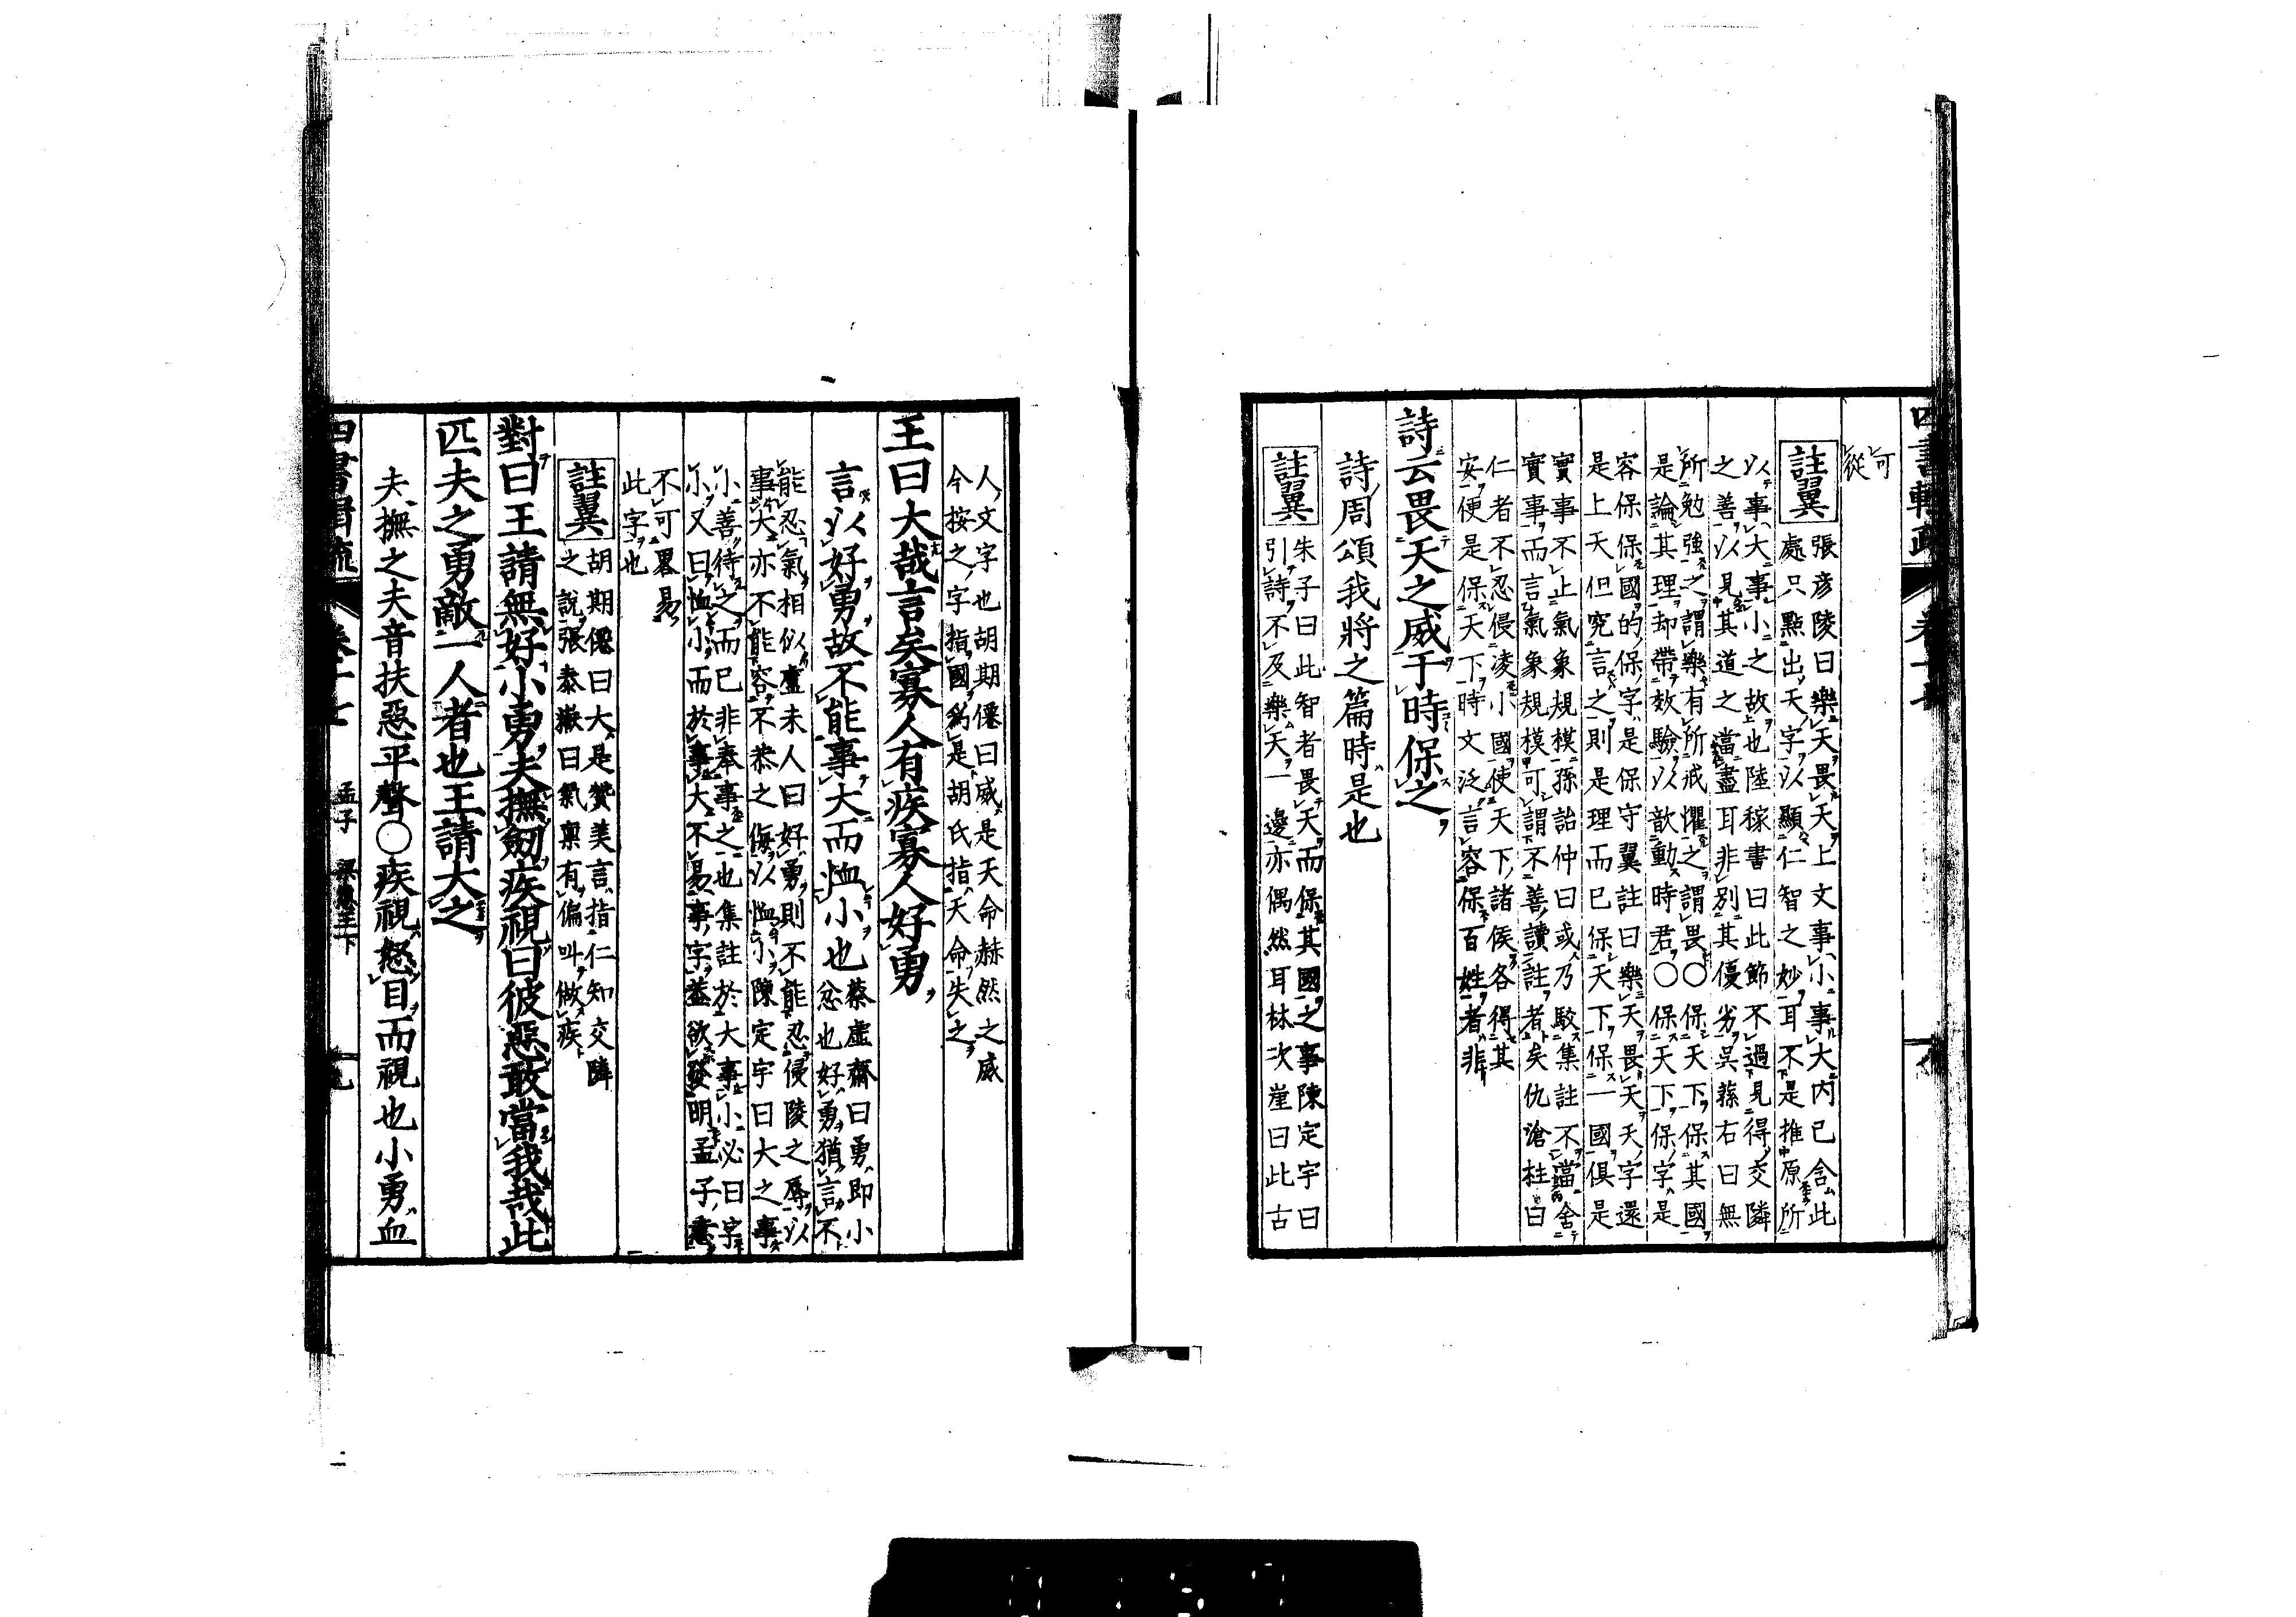 可
從
註翼
張彦陵曰樂天畏天上文事小事大内已含此
處只點出天字以顯仁智之妙耳不是推原所
以事大事小之故也陸稼書曰此節不過見得交隣
之善以見其道之當盡耳非別其優劣呉蓀右曰無
所勉強之謂樂有所戒懼之謂畏〇保天下保其國
是論其理却帶效驗以歆動時君〇保天下保字是
容保保國的保字是保守翼註曰樂天畏天天字還
是上天但究言之則是理而已保天下保一國俱是
實事不止氣象規模孫詒仲曰或乃駁集註不當舍
實事而言氣象規模可謂不善讀註者矣仇滄柱曰
仁者不忍侵凌小國使天下諸侯各得其
安便是保天下時文泛言容保百姓者非
詩云畏天之威于時保之
詩周頌我將之篇時是也
註翼
朱子曰此智者畏天而保其國之事陳定宇曰
引詩不及樂天一邊亦偶然耳林次崖曰此古
人文字也胡期僊曰威是天命赫然之威
今按之字指國爲是胡氏指天命失之
王曰大哉言矣寡人有疾寡人好勇
言以好勇故不能事大而恤小也
蔡虛齋曰勇即小
忿也好勇猶言不
能忍氣相似盧未人曰好勇則不能忍侵陵之辱以
事大亦不能容不恭之侮以恤小陳定宇曰大之事
小善待之而已非奉事之也集註於大事小必曰字
小又曰恤小而於事大不易事字益欲發明孟子意
不可畧易
此字也
註翼
胡期僊曰大是贊美言指仁知交隣
之說張泰嶽曰氣禀有偏叫做疾
對曰王請無好小勇夫撫劒疾視曰彼惡敢當我哉此
匹夫之勇敵一人者也王請大之
夫撫之夫音扶惡平聲〇疾視怒目而視也小勇血
孟子 梁惠王下